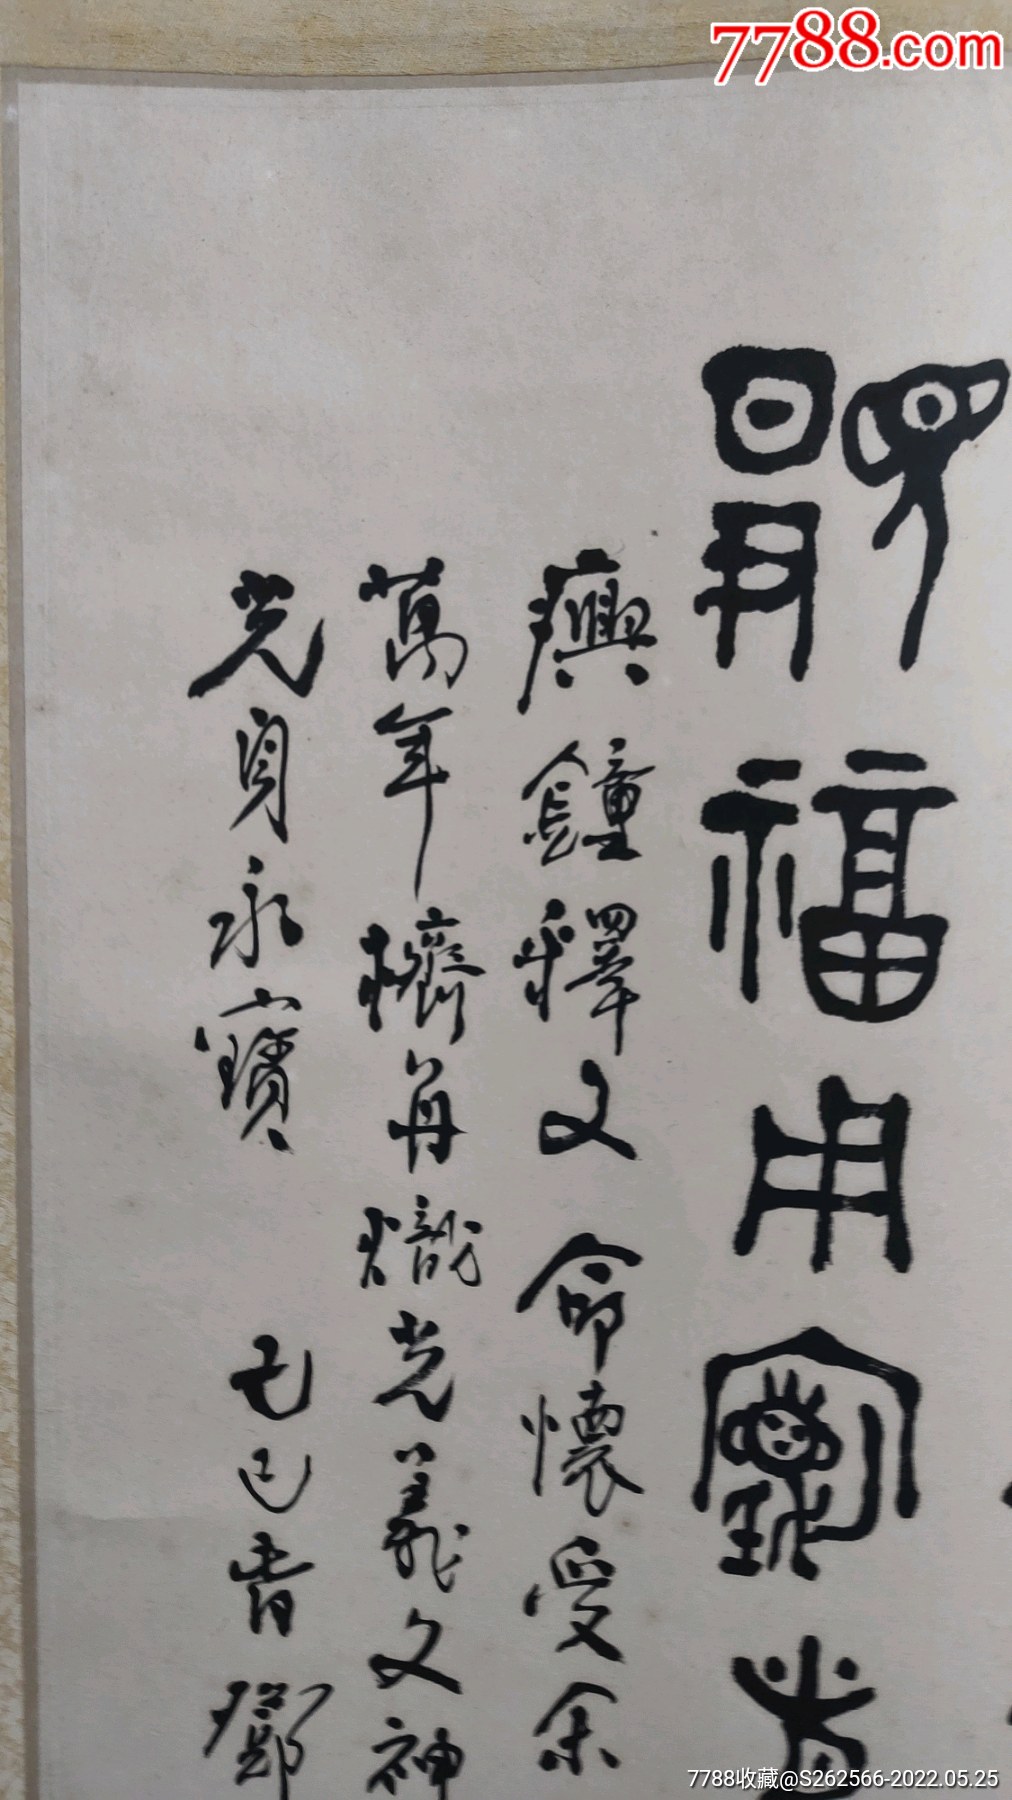 7788.com
福用寓
𤼈鐘釋文 命懷受余
萬年檱角熾光義文神
光身永寶 己巳春鄧
7788收藏@S262566-2022.05.25